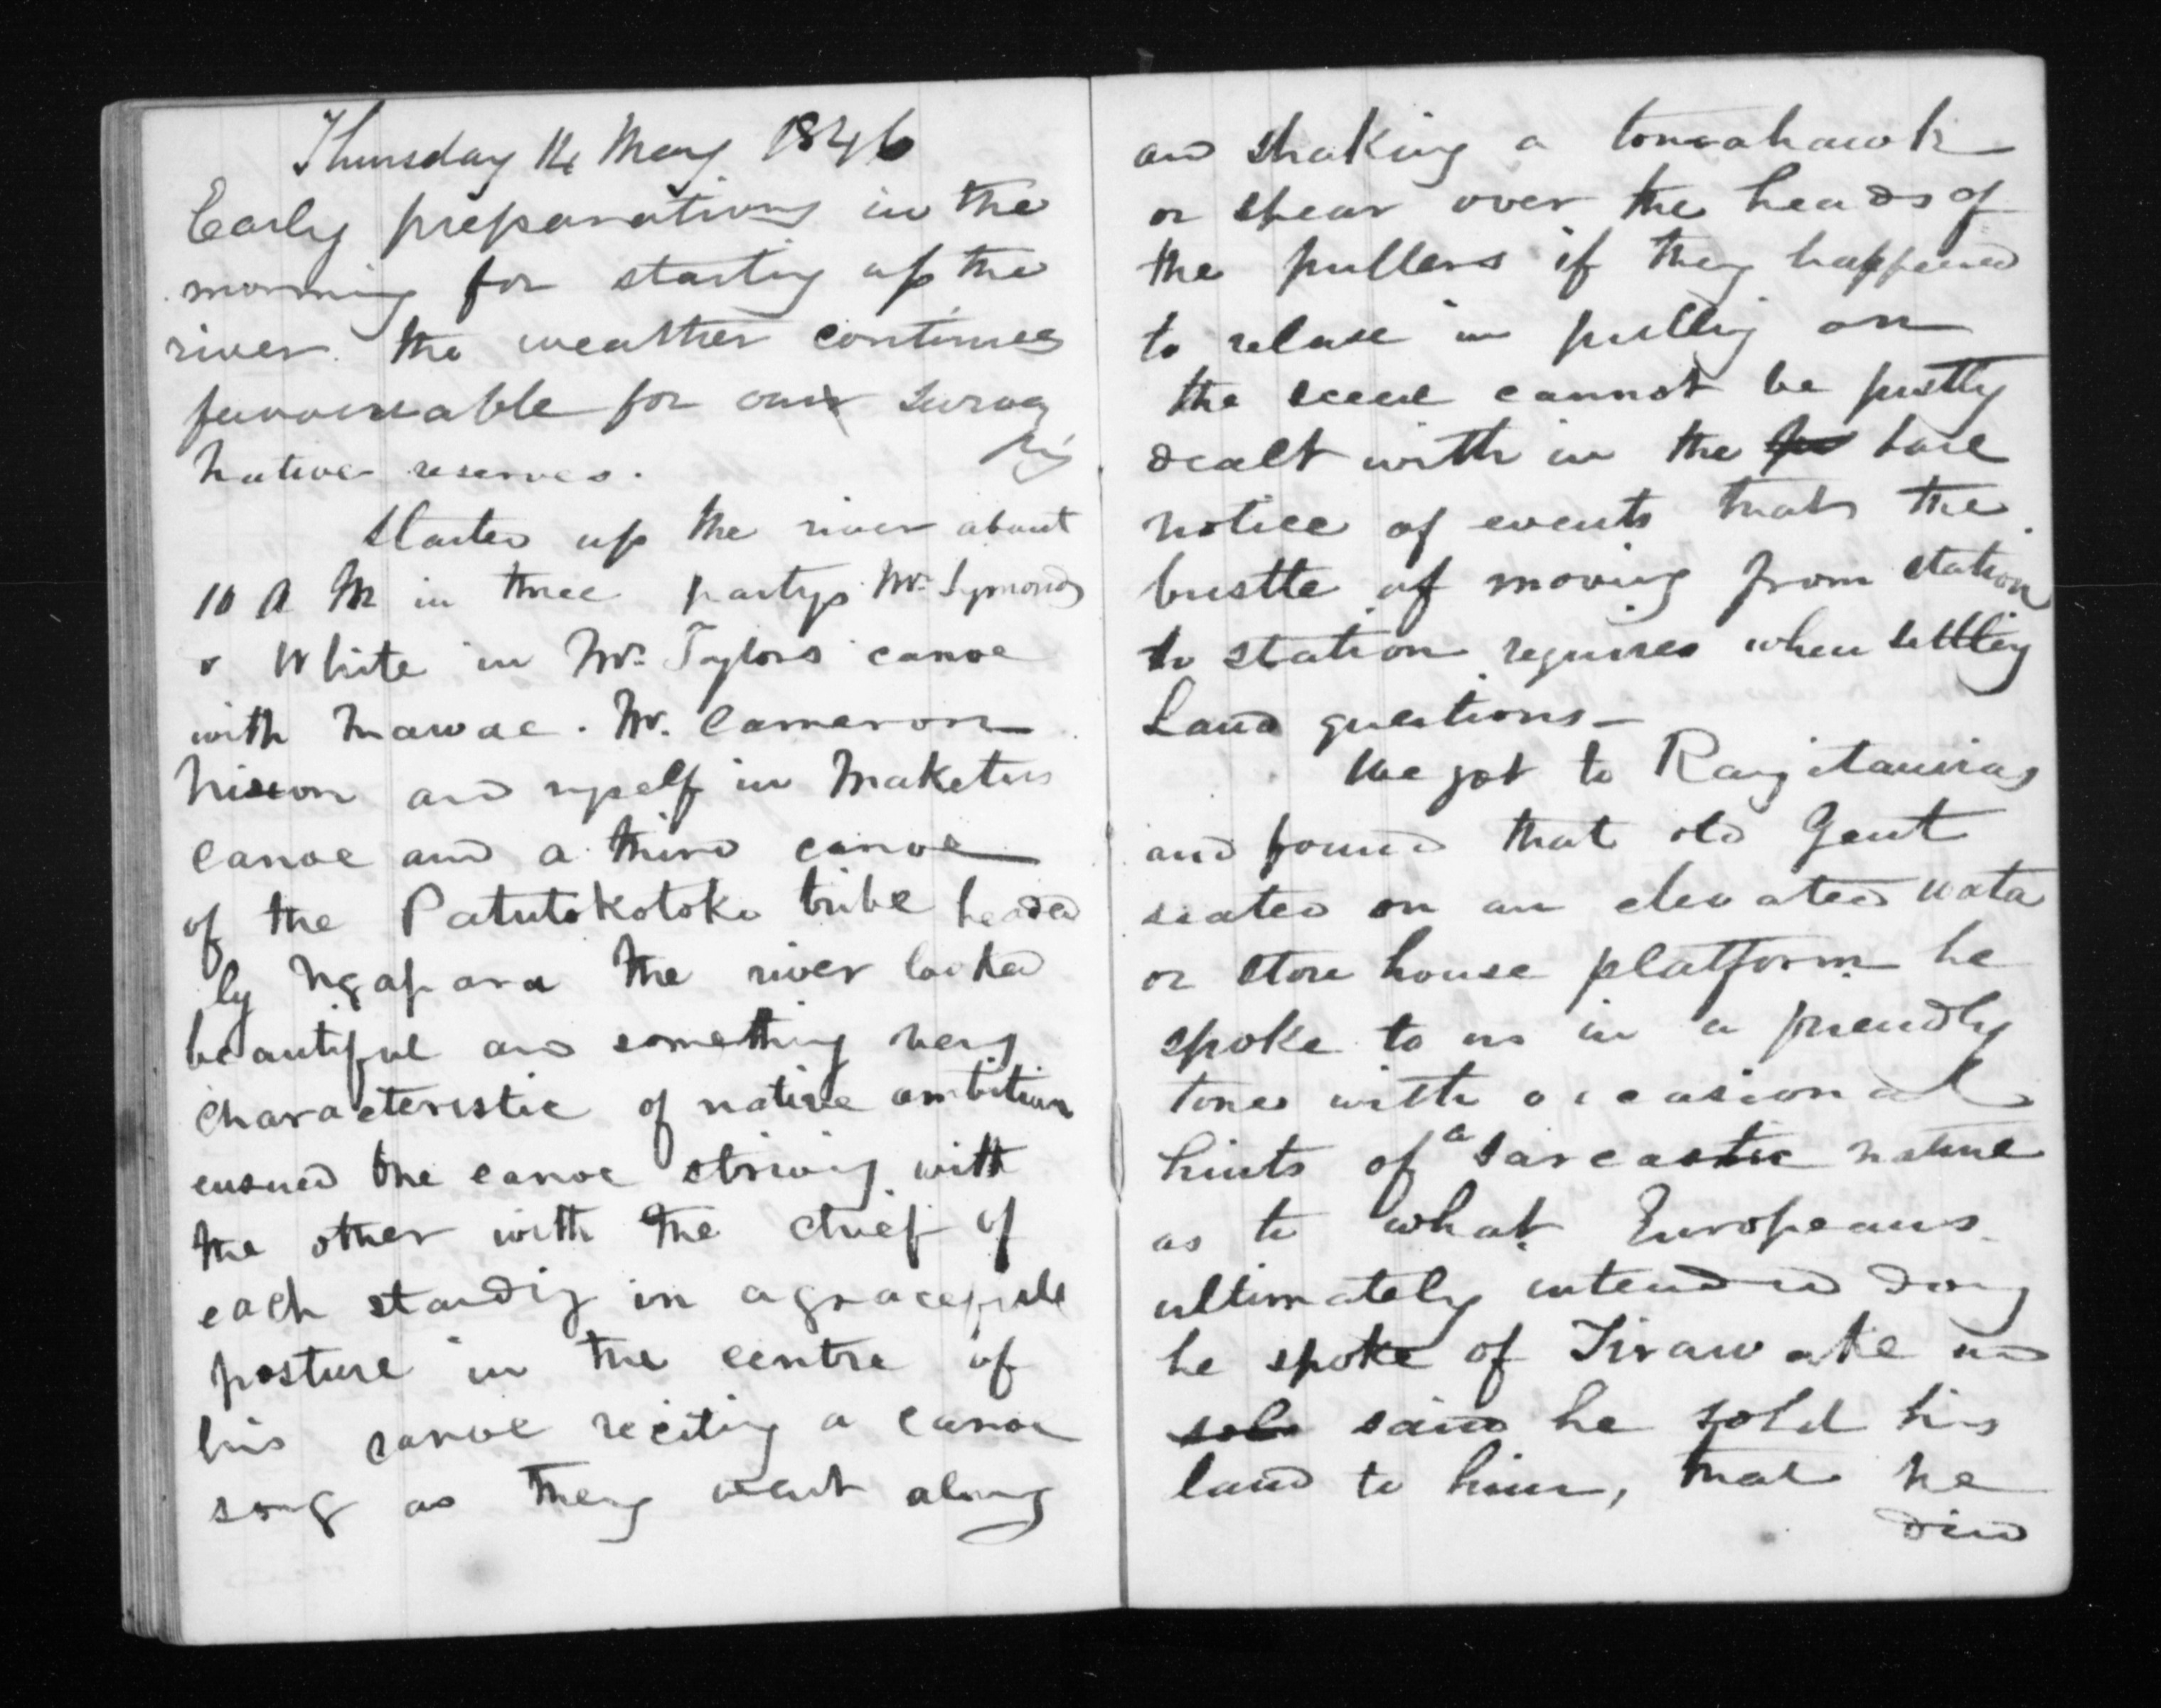 Thursday 14 May 1846
Early preparations in the
morning for starting up the
river. the weather continues
favourable for our survey
ing
native reserves.
Started up the river about
10 A M in three partys Mr. Symonds
& White in Mr. Taylors canoe
with Mawae. Mr. Cameron
Nixon and myself in Maketus
canoe and a third canoe
of the Patutokotoko tribe headed
by Ngapara the river looked
beautiful and something very
characteristic of native ambition
ensued the canoe striving with
the other with the chief of
each standing in a graceful
posture in the centre of
his canoe reciting a canoe
song as they went along
and shaking a tomahawk
or spear over the heads of
the pullers if they happened
to relase in pulling on
the scene cannot be justly
dealt with in the bare
notice of events that the
bustle of moving from station
to station requires when settling
Land questions—
We got to Rangitauiras
and found that old Gent
seated on an elevated wata
or store house platform he
spoke to us in a friendly
tone with occasional
hints of a sarcastic nature
as to what Europeans
ultimately intended doing
he spoke of Tirawake and
said he sold his
land to him, that he
died